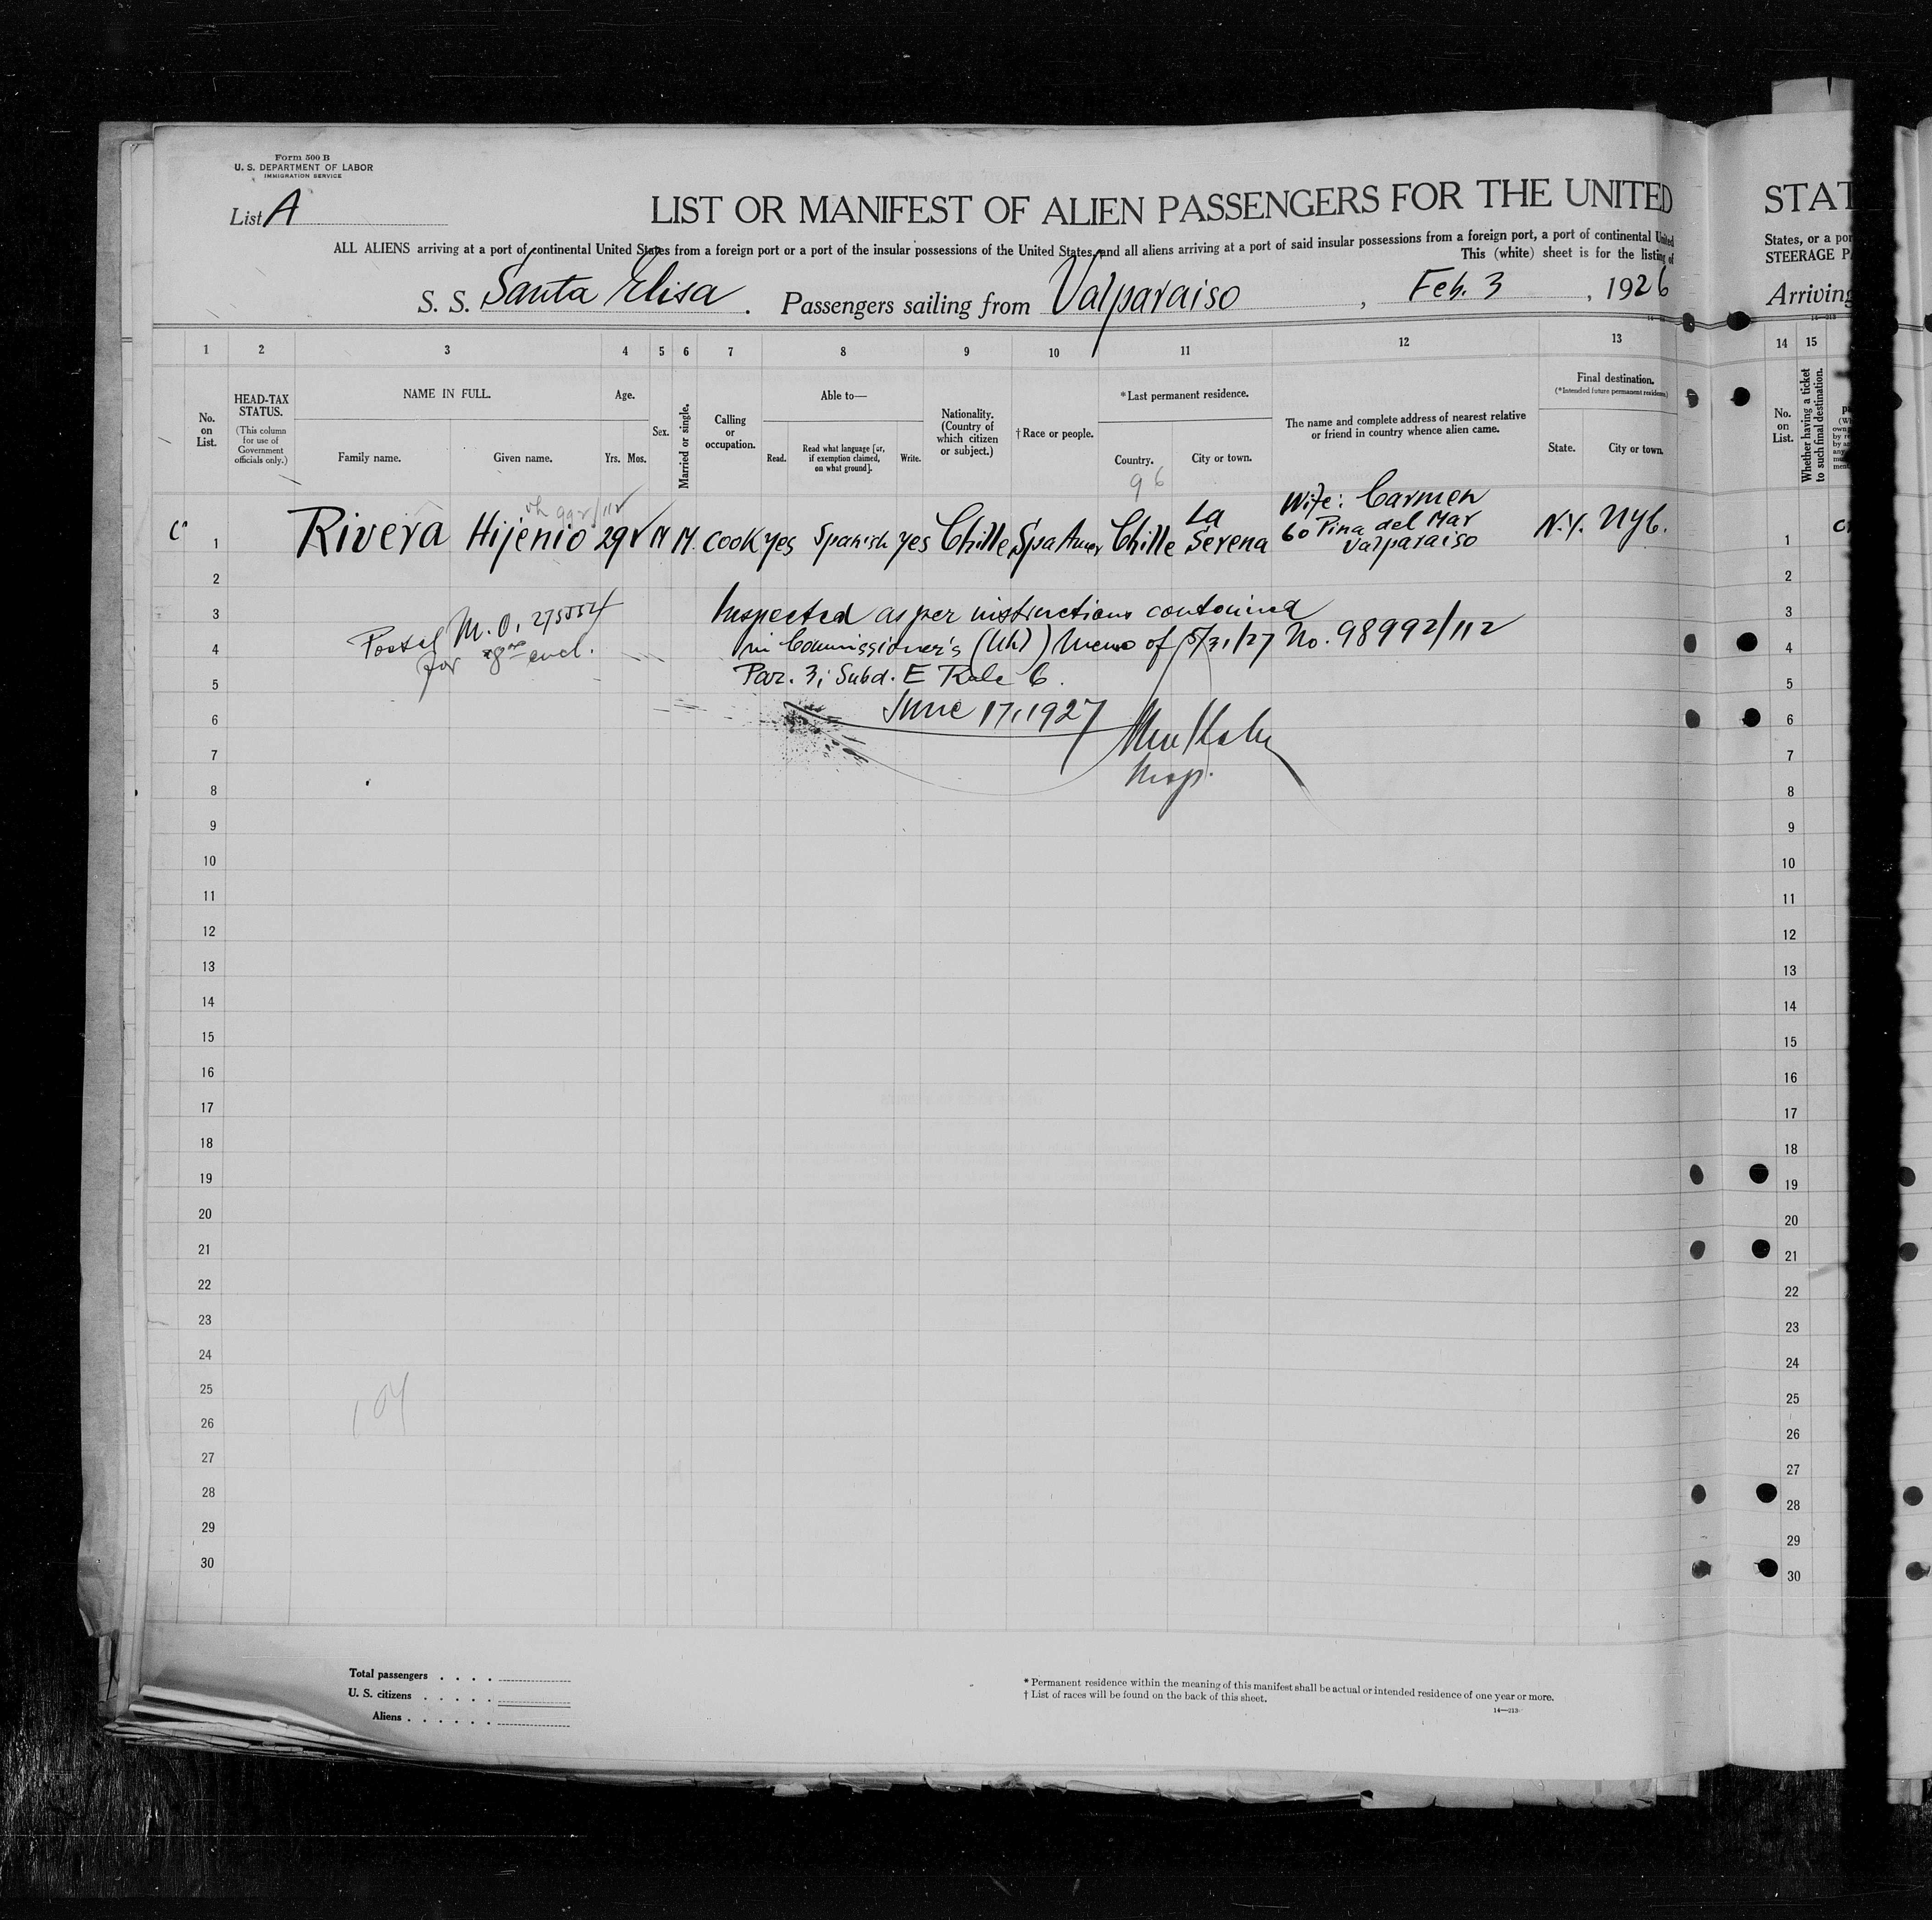 Form 500 B
U. S. DEPARTMENT OF LABOR
IMMIGRATION SERVICE
List A
LIST OR MANIFEST OF ALIEN PASSENGERS FOR THE UNITED
ALL ALIENS arriving at a port of continental United States from a foreign port or a port of the insular possessions of the United States, and all aliens arriving at a port of said insular possessions from a foreign port, a port of continental United
This (white) sheet is for the listing of
S. S. Santa Elisa. Passengers sailing from Valparaiso, Feb. 3, 1926
1 2 3 4 5 6 7 8 9 10 11 12 13
No. on List.
HEAD-TAX STATUS.
(This column for use of Government officials only.)
NAME IN FULL.
Family name. Given name.
Age.
Yrs. Mos.
Sex.
Married or single.
Calling or occupation.
Able to—
Read. Read what language [or, if exemption claimed, on what ground]. Write.
Nationality. (Country of which citizen or subject.)
†Race or people.
*Last permanent residence.
Country. City or town.
The name and complete address of nearest relative or friend in country whence alien came.
Final destination.
(*Intended future permanent residence.)
State. City or town.
96
1 Rivera Hijenio 29 M M. Cook yes Spanish yes Chille Spa Amer Chille La Serena Wife: Carmen 60 Pina del Mar Valparaiso N.Y. NYC.
2
3
4
5
6
7
8
9
10
11
12
13
14
15
16
17
18
19
20
21
22
23
24
25
26
27
28
29
30
Postal M.O.
for encl.
Inspected as per instructions contained
in Commissioner's (Uhl) Memo of 5/31/27 No. 98992/112
Par. 3, Subd. E Rule 6.
June 17, 1927
Insp.
104
Total passengers
U. S. citizens
Aliens
* Permanent residence within the meaning of this manifest shall be actual or intended residence of one year or more.
† List of races will be found on the back of this sheet.
14—213
STAT
States, or a por
STEERAGE P
Arriving
14—213
14 15
No. on List.
Whether having a ticket to such final destination.
1
2
3
4
5
6
7
8
9
10
11
12
13
14
15
16
17
18
19
20
21
22
23
24
25
26
27
28
29
30